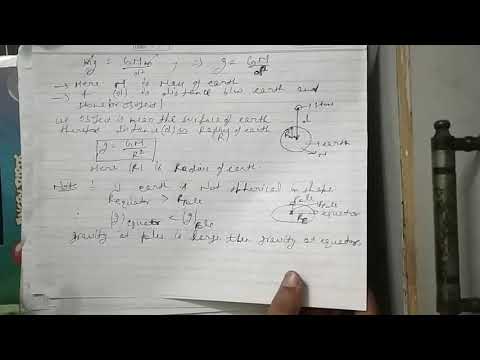 mg = GMm/d² , ⇒ g = GM/d²
→ Here M is Mass of earth
→ & (d) is distance b/w earth and
stone (object)
let object is near the surface of earth
therefore distance (d) ≈ Radius of earth
R
g = GM/R²
Here (R) is Radius of earth.
Note : earth is Not spherical in shape
R equator > R pole
∴ (g) equator < (g) pole
gravity at poles is larger then gravity at equator.
stone
d
earth
M
pole
R pole
equator
R E